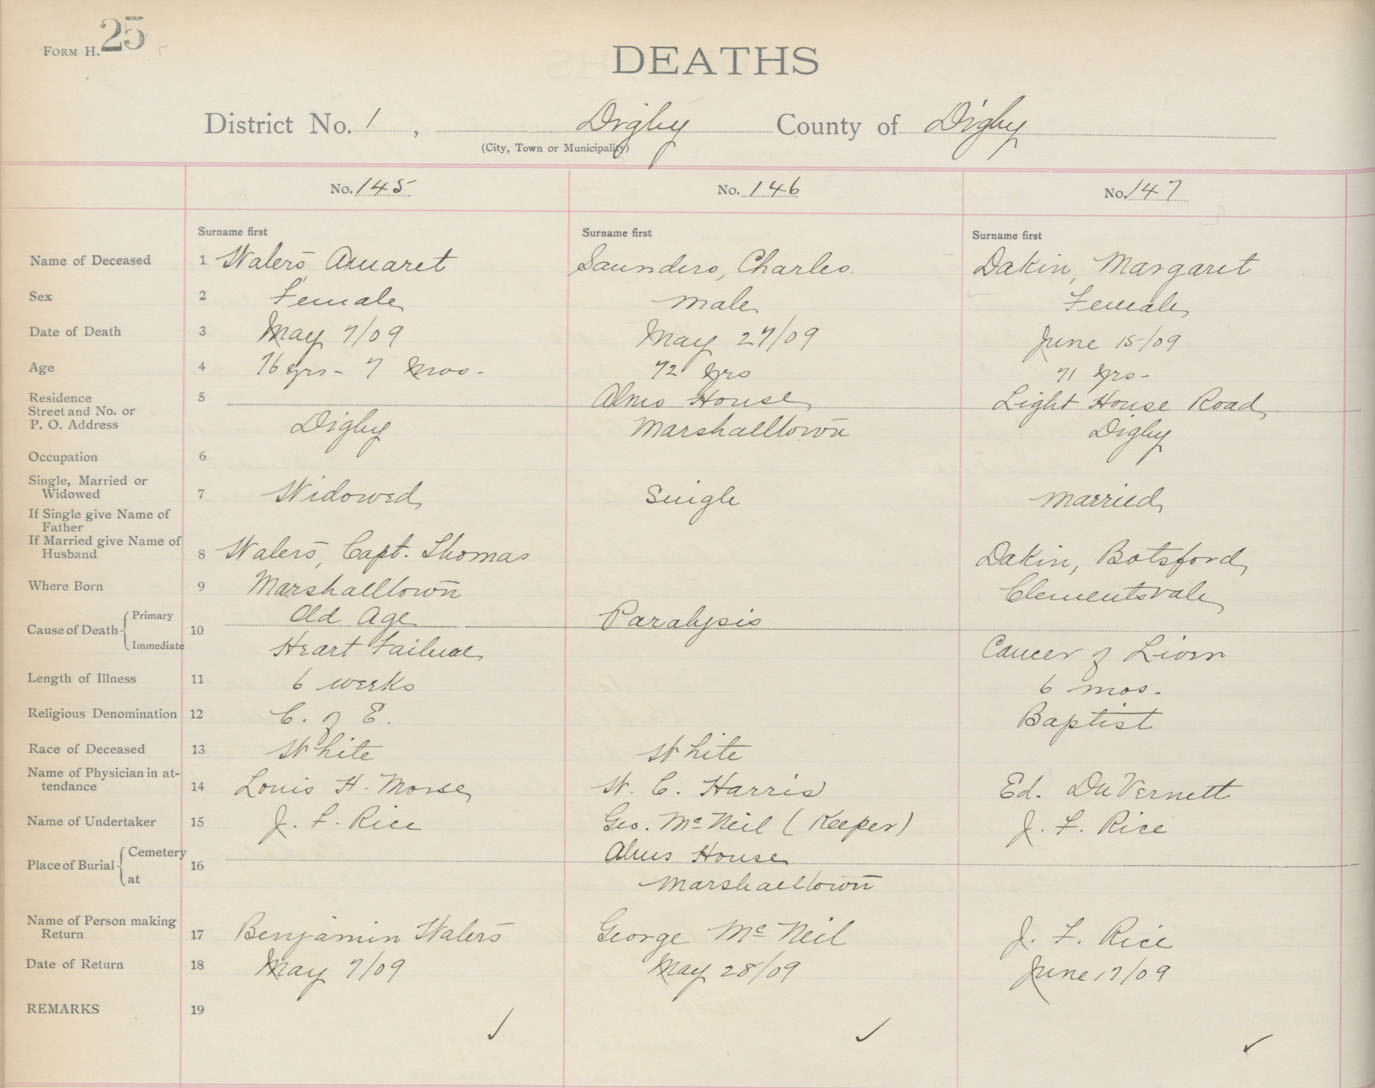 FORM H. 25
DEATHS
District No. 1, Digby County of Digby
(City, Town or Municipality)
No. 145 No. 146 No. 147
Surname first Surname first Surname first
Name of Deceased 1 Walers Amaret Saunders, Charles Dakin, Margaret
Sex 2 Female male Female
Date of Death 3 May 7/09 May 27/09 June 15/09
Age 4 76 yrs - 7 mos - 72 yrs 71 yrs -
Residence 5 Alms House Light House Road
Street and No. or
P. O. Address Digby Marshalltown Digby
Occupation 6
Single, Married or
Widowed 7 Widowed Single Married
If Single give Name of
Father
If Married give Name of
Husband 8 Walers, Capt. Thomas Dakin, Botsford
Where Born 9 Marshalltown Clementsvale
Cause of Death Primary 10 Old Age Paralysis
Immediate Heart Failure Cancer of Liver
Length of Illness 11 6 weeks 6 mos -
Religious Denomination 12 C. of E. Baptist
Race of Deceased 13 White White
Name of Physician in at-
tendance 14 Louis H. Morse W. C. Harris Ed. DuVernett
Name of Undertaker 15 J. F. Rice Geo. McNeil (Keeper) J. F. Rice
Place of Burial Cemetery 16 Alms House
at Marshalltown
Name of Person making
Return 17 Benjamin Walers George McNeil J. F. Rice
Date of Return 18 May 7/09 May 28/09 June 17/09
REMARKS 19